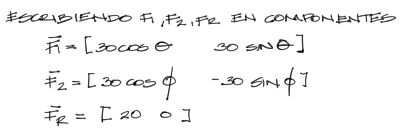 ESCRIBIENDO F1, F2, FR EN COMPONENTES
F⃗1 = [30 cos θ   30 sin θ]
F⃗2 = [30 cos ϕ   -30 sin ϕ]
F⃗R = [20   0]